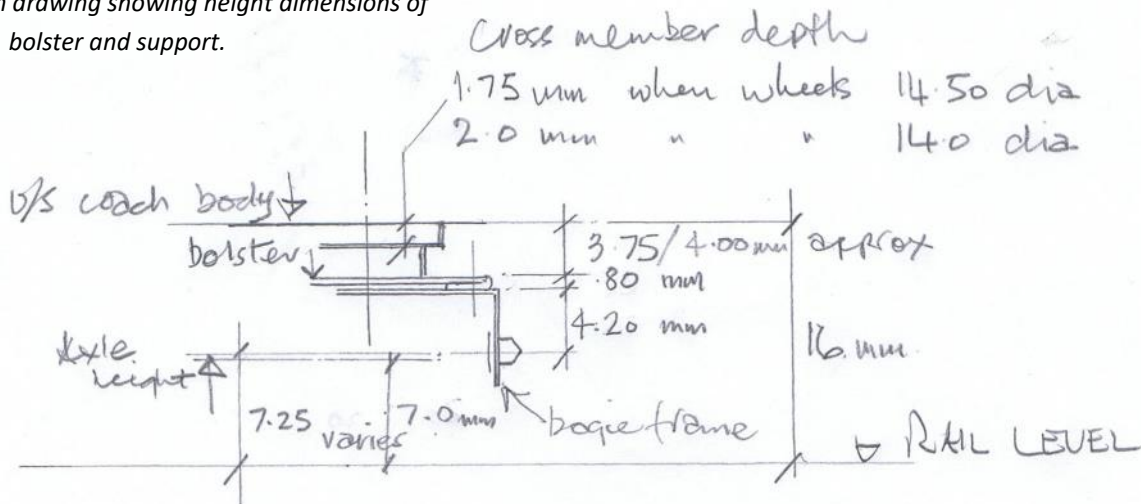 drawing showing height dimensions of
bolster and support.
Cross member depth
1.75 mm when wheels 14.50 dia
2.0 mm " " 14.0 dia
U/S coach body
bolster
3.75/4.00mm approx
.80 mm
4.20 mm
16 mm
Axle
height
7.25 varies 7.0mm
bogie frame
RAIL LEVEL